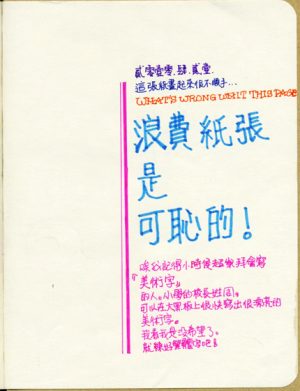 貳零壹零.肆.貳壹.
這張紙畫起來很不順手...
WHAT'S WRONG WHIT THIS PAGE
浪費紙張
是
可恥的！
我記得小時候超崇拜會寫
「美術字」
的人。小學的校長姓周。
可以在大黑板上很快寫出很漂亮的
美術字。
我看我是沒希望了。
就練好變體字吧！